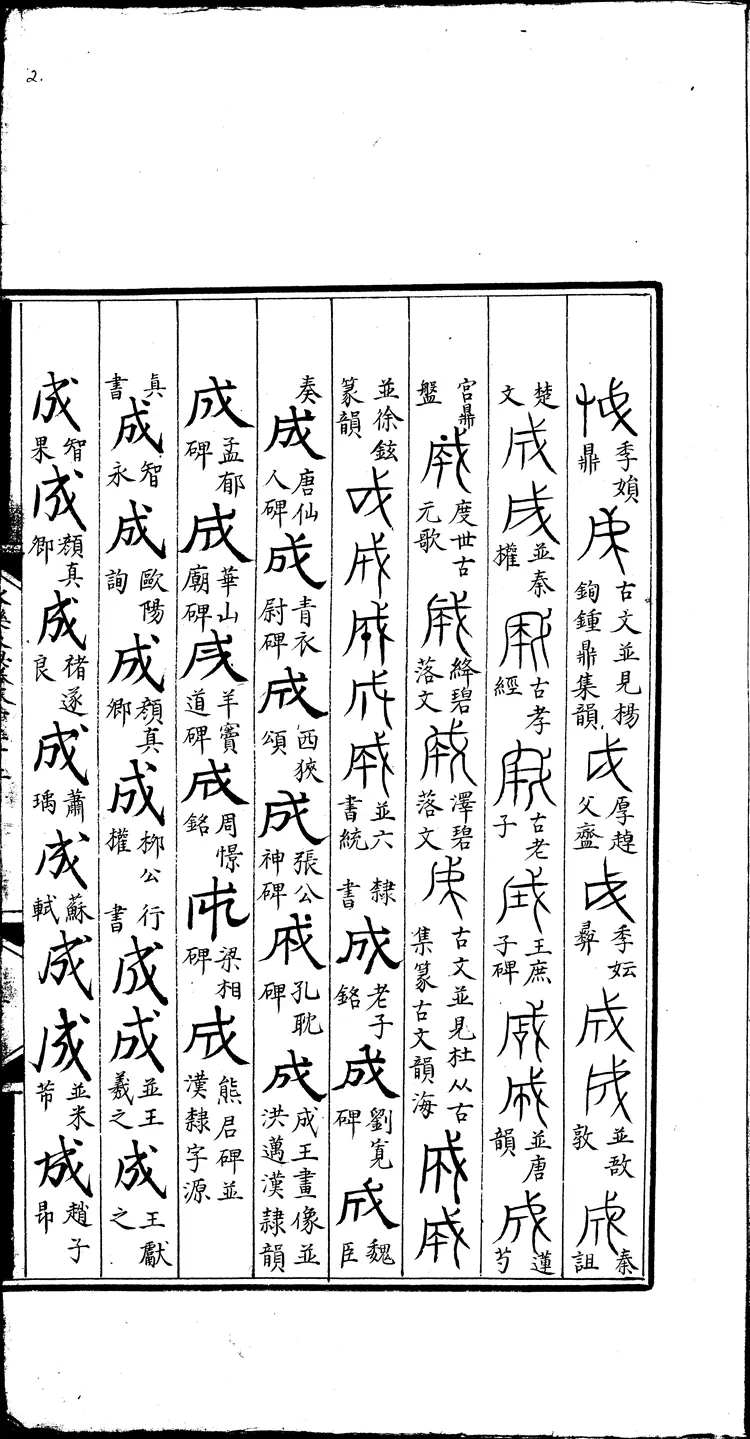 2.
成季媜鼎成古文並見楊鉤鍾鼎集韻成厚趠父䀇成季妘彞成成並敔敦成秦詛
楚文成成並秦權成古孝經成古老子成王庶子碑成成並唐韻成蓮芍
宮鼎盤成度世古元歌成絳碧落文成澤碧落文成古文並見杜从古集篆古文韻海成成
並徐鉉篆韻成成成成成並六書統隸書成老子銘成劉寬碑成魏臣
奏成唐仙人碑成青衣尉碑成西狹頌成張公神碑成孔耽碑成成王畫像並洪邁漢隸韻
成孟郁碑成華山廟碑成羊竇道碑成周憬銘成梁相碑成熊君碑並漢隸字源
真書成智永成歐陽詢成顏真卿成柳公權行書成成並王羲之成王獻之
成智果成顏真卿成褚遂良成蕭瑀成蘇軾成成並米芾成趙子昂